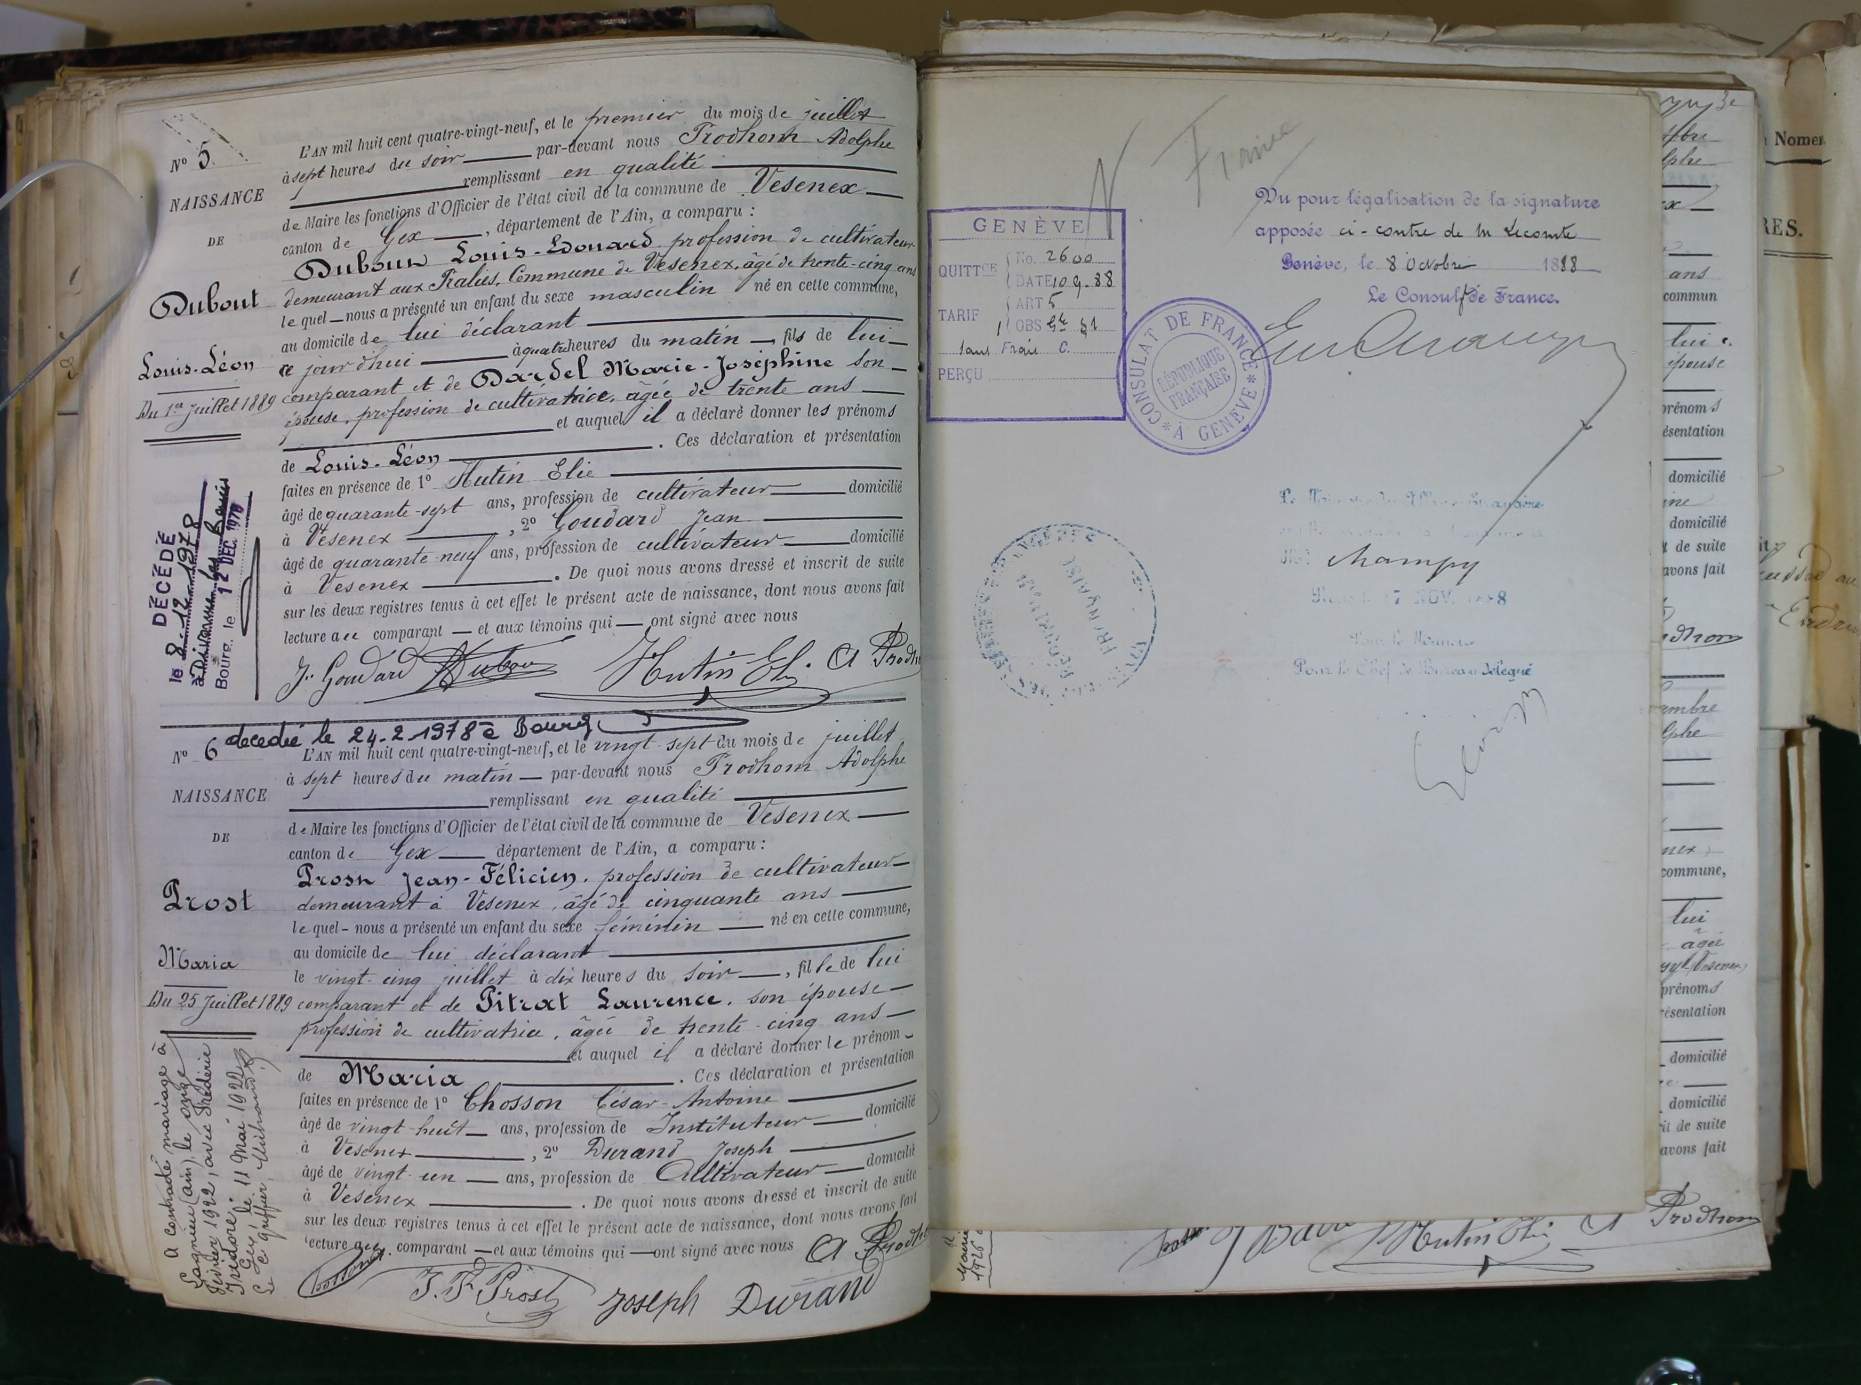 N° 5.
NAISSANCE
DE
Dubout
Louis-Léon
Du 1er Juillet 1889
DÉCÉDÉ
le 8-12-1978
à Divonne les Bains
Bourg, le 12 DEC. 1978
L'AN mil huit cent quatre-vingt-neuf, et le premier du mois de juillet
à sept heures du soir par-devant nous Prodhom Adolphe
remplissant en qualité
de Maire les fonctions d'Officier de l'état civil de la commune de Vesenex
canton de Gex, département de l'Ain, a comparu :
Dubout Louis-Edouard profession de cultivateur
demeurant aux Tralies, Commune de Vesenex, âgé de trente-cinq ans
lequel nous a présenté un enfant du sexe masculin né en cette commune,
au domicile de lui déclarant
ce jourd'hui à quatre heures du matin, fils de lui
comparant et de Dardel Marie-Joséphine son
épouse, profession de cultivatrice, âgée de trente ans
et auquel il a déclaré donner les prénoms
de Louis-Léon. Ces déclaration et présentation
faites en présence de 1° Hutin Elie
âgé de quarante-sept ans, profession de cultivateur domicilié
à Vesenex, 2° Goudard Jean
âgé de quarante-neuf ans, profession de cultivateur domicilié
à Vesenex. De quoi nous avons dressé et inscrit de suite
sur les deux registres tenus à cet effet le présent acte de naissance, dont nous avons fait
lecture au comparant et aux témoins qui ont signé avec nous
J. Goudard Dubou Hutin Eli. A Prodh
N° 6 décédée le 24-2-1978 à Bourg
NAISSANCE
DE
Prost
Maria
Du 25 Juillet 1889
a contracté mariage à
Lagnieu (ain) le onze
février 1922, avec Frédéric
Isidore
Gex, le 11 Mai 1922
Le greffier,
L'AN mil huit cent quatre-vingt-neuf, et le vingt-sept du mois de juillet
à sept heures du matin par-devant nous Prodhom Adolphe
remplissant en qualité
de Maire les fonctions d'Officier de l'état civil de la commune de Vesenex
canton de Gex département de l'Ain, a comparu :
Prost Jean-Félicien, profession de cultivateur
demeurant à Vesenex, âgé de cinquante ans
lequel nous a présenté un enfant du sexe féminin né en cette commune,
au domicile de lui déclarant
le vingt-cinq juillet à dix heures du soir, fille de lui
comparant et de Pitrat Laurence, son épouse
profession de cultivatrice, âgée de trente-cinq ans
et auquel il a déclaré donner le prénom
de Maria. Ces déclaration et présentation
faites en présence de 1° Chosson César-Antoine
âgé de vingt-huit ans, profession de Instituteur domicilié
à Vesenex, 2° Durand Joseph
âgé de vingt-un ans, profession de Cultivateur domicilié
à Vesenex. De quoi nous avons dressé et inscrit de suite
sur les deux registres tenus à cet effet le présent acte de naissance, dont nous avons fait
lecture au comparant et aux témoins qui ont signé avec nous A Prodh
Chosson J. F. Prost Joseph Durand
N.
Vu pour légalisation de la signature
apposée ci-contre de M Lecomte
Genève, le 8 Octobre 1888
Le Consul de France.
GENÈVE
QUITTCE No. 2600
DATE 10 9. 88
TARIF ART 5
OBS
Sans Frais C.
PERÇU
CONSULAT DE FRANCE
À GENÈVE
RÉPUBLIQUE
FRANÇAISE
Champy
17 NOV. 1888
Pour le Ministre
Pour le Chef de Bureau délégué
Nomer
RES.
lphe
ans
commun
lui
épouse
prénoms
ésentation
domicilié
domicilié
de suite
avons fait
dhom
embre
lphe
commune,
lui
âgée
prénoms
résentation
domicilié
domicilié
rit de suite
avons fait
Hutin Eli A Prodhom